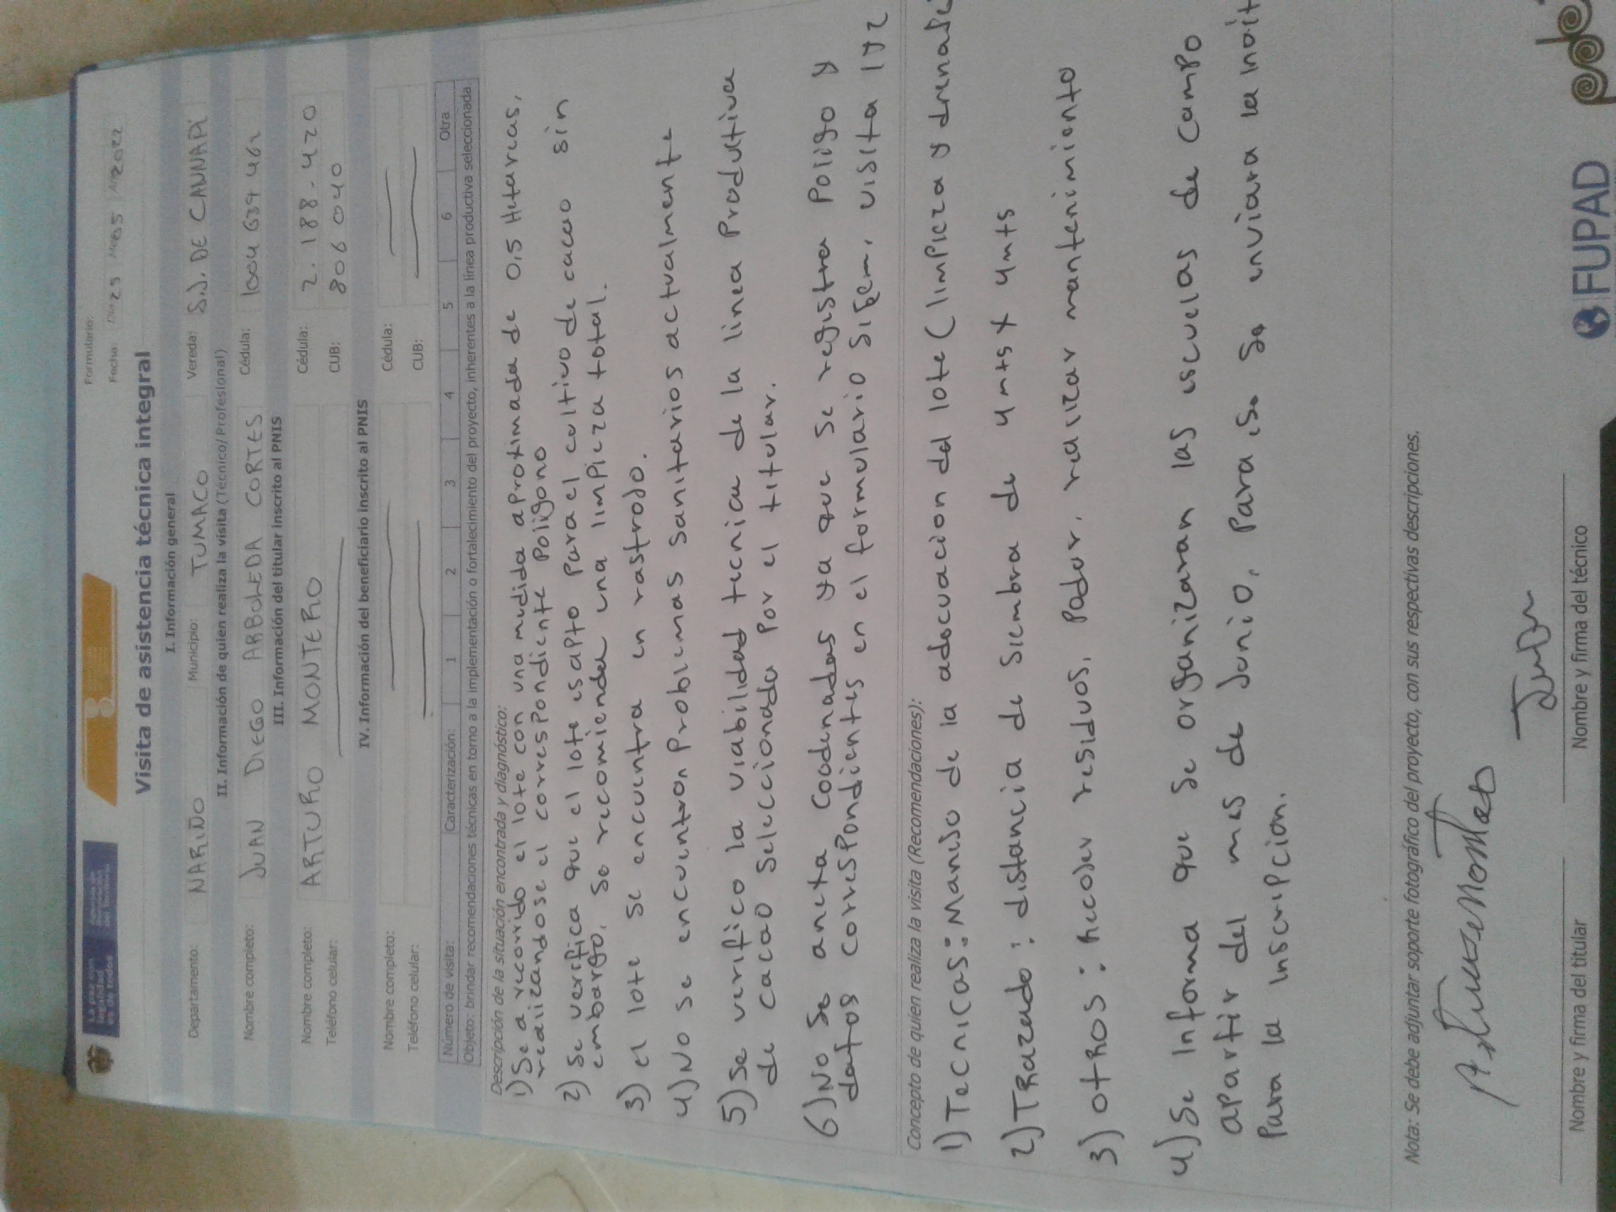 La paz con legalidad es de todos
Formulario:
Fecha: 2022
Visita de asistencia técnica integral
I. Información general
Departamento: NARIÑO Municipio: TUMACO Vereda: S.J. DE CAUNAPÍ
II. Información de quien realiza la visita (Técnico/Profesional)
Nombre completo: JUAN DIEGO ARBOLEDA CORTES Cédula:
III. Información del titular inscrito al PNIS
Nombre completo: ARTURO MONTERO Cédula: 2.188.420
Teléfono celular: CUB: 8060040
IV. Información del beneficiario inscrito al PNIS
Nombre completo: Cédula:
Teléfono celular: CUB:
Número de visita: Caracterización: 1 2 3 4 5 6 Otra
Objeto: brindar recomendaciones técnicas en torno a la implementación o fortalecimiento del proyecto, inherentes a la línea productiva seleccionada
Descripción de la situación encontrada y diagnóstico:
1) Se a recorrido el lote con una medida aproximada de 0,5 Hetareas,
realizandose el correspondiente Poligono
2) Se verifica que el lote es apto para el cultivo de cacao sin
embargo, se recomienda una limpieza total.
3) el lote se encuentra en rastrojo.
4) No se encuentran Problemas sanitarios actualmente
5) Se verifico la viabilidad tecnica de la linea Produtiva
de cacao seleccionada por el titular.
6) No se aneta Coodenadas ya que se registra Poligo y
datos correspondientes en el formulario Sigem, visita 1y2
Concepto de quien realiza la visita (Recomendaciones):
1) Tecnicas: Manejo de la adecuacion del lote (limpieza y drenaje
2) Trazado: distancia de siembra de 4mts x 4mts
3) Otros: Recojer residuos, Podar, realizar mantenimiento
4) Se informa que se organizaran las escuelas de campo
apartir del mes de Junio, Para eso se enviara la
Para la inscripcion.
Nota: Se debe adjuntar soporte fotográfico del proyecto, con sus respectivas descripciones.
Nombre y firma del titular Nombre y firma del técnico
FUPAD